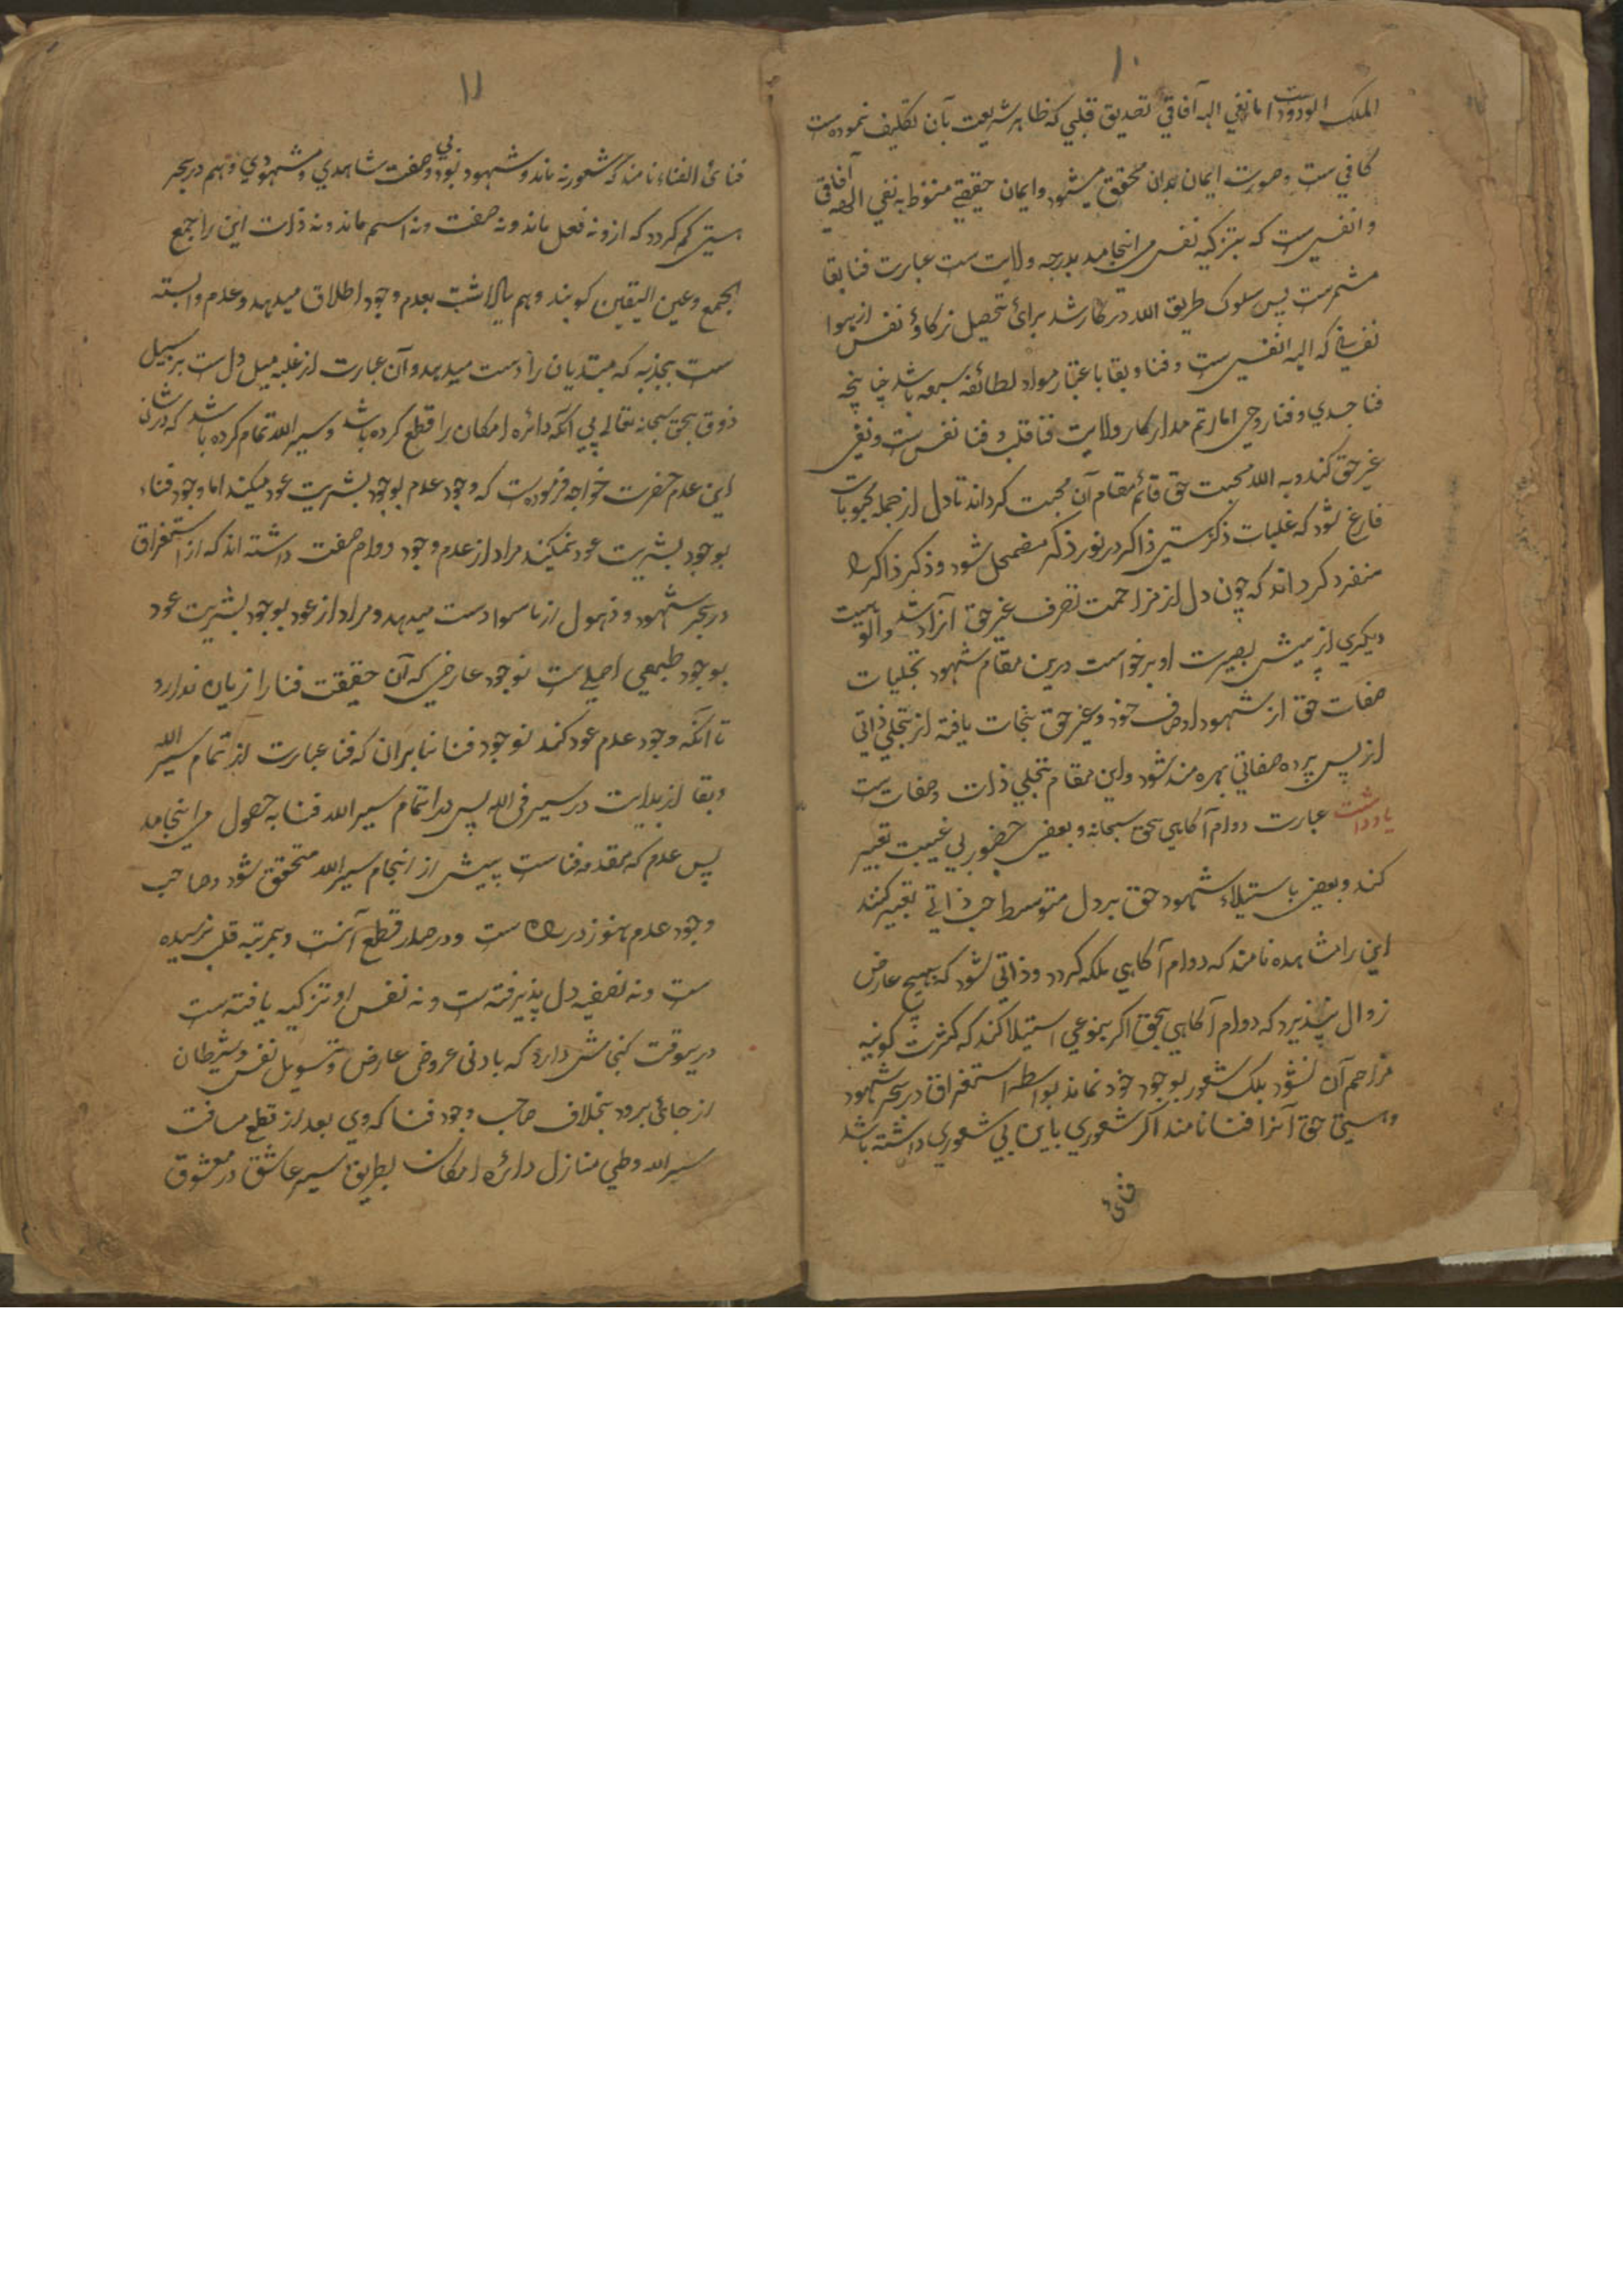 ۱۰
الملک الودودست اما نفي الهه آفاقي تصديق قلبي که ظاهر شريعت بآن تکليف نموده ست
کافي ست وصورت ايمان بدان محقق ميشود وايمان حقيقے منوط به نفي الهه آفاقي
وانفسي ست که بتزکيه نفس مي انجامد بدرجه ولايت ست عبارت فنا بقا
مشمرست پس سلوک طريق الله درکار شد برائ تحصيل زکاوة نفس از هوا
نفساني که الهه انفسي ست وفنا وبقا باعتبار مواد لطائفه سبعه باشد چنانچه
فنا جسدي وفنا روحي اما رتم مدار کار ولايت فنا قلب وفنا نفس ست ونفي
غير حق کند وبه الله محبت حق قائم مقام آن محبت گرداند تا دل از جمله محبوبات
فارغ شود که غلبات ذکر هستي ذاکر در نور ذکر مضمحل شود وذکر ذاکر را
منفرد گرداند که چون دل از مزاحمت تصرف غير حق آزاد شد والوهيت
ديکري از پيش بصيرت او برخواست درين مقام شهود تجليات
صفات حق از شهود اوصاف خود وغير حق نجات يافته از تجلي ذاتي
از پس پرده صفاتي بهره مند شود واين مقام تجلي ذات وصفات ست
يادداشت عبارت دوام آگاهي بحق سبحانه وبعضي حضور بي غيبت تعبير
کند وبعضي باستيلاء شهود حق بر دل متوسط حب ذاتي تعبير کنند
اين را مشاهده نامند که دوام آگاهي ملکه گردد وذاتي شود که بهيچ عارض
زوال نپذيرد که دوام آگاهي بحق اگر بنوعي استيلا کند که کثرت کونيه
مزاحم آن نشود بلک شعور بوجود خود نماند بواسطه استغراق در بحر شهود
وهستي حق آنرا فنا نامند اگر شعوري باين بي شعوري داشته باشد
فنائ
۱۱
فنائ الفناء نامند که شعور نه ماند وشهود بود بي وصفت شاهدي ومشهودي وبهم در بحر
هستي گم گردد که ازو نه فعل ماند ونه صفت ونه اسم ماند ونه ذات اين را جمع
الجمع وعين اليقين گويند وبهم بعدم وجود اطلاق ميدهد وعدم وابسته
ست بجذبه که مبتديان را دست ميدهد وآن عبارت از غلبه ميل دل ست بر سبيل
ذوق بحق سبحانه تعالے بي آنکه دائره امکان را قطع کرده باشد وسير الله تمام کرده باشد که در شان
اين عدم حضرت خواجه فرموده ست که وجود عدم بوجود بشريت عود ميکند اما وجود فناء
بوجود بشريت عود نميکند مراد از عدم وجود دوام صفت داشته اند که از استغراق
در بحر شهود وذهول از ماسوا دست ميدهد ومراد از عود بوجود بشريت عود
بوجود طبيعي اصلي ست نوجود عارضي که آن حقيقت فنا را زيان ندارد
تا آنکه وجود عدم عود کند نوجود فنا بنابران که فنا عبارت از تمام سير الله
وبقا از بدايت در سير في الله پس بدا تمام سير الله فنا به حصول مي انجامد
پس عدم که مقدمه فناست پيش از انجام سير الله متحقق شود وصاحب
وجود عدم هنوز در راه ست ودر صدد قطع آنست وبمرتبه قلب نرسيده
ست ونه تصفيه دل پذيرفته ست ونه نفس او تزکيه يافته ست
درينوقت گنجائش دارد که بادنى عروض عارض وتسويل نفس وشيطان
از جائ برود بخلاف صاحب وجود فنا که وي بعد از قطع مسافت
سير الله وطي منازل دائره امکان بطريق سير عاشق در معشوق